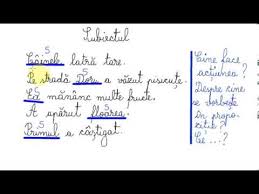 Subiectul
S
Câinele latră tare.
S
Pe stradă Doru a văzut pisicuțe.
S
Ea mănâncă multe fructe.
S
A apărut floarea.
S
Primul a câștigat.
Cine face
acțiunea?
Despre cine
se vorbește
în propo-
ziție?
Ce...?